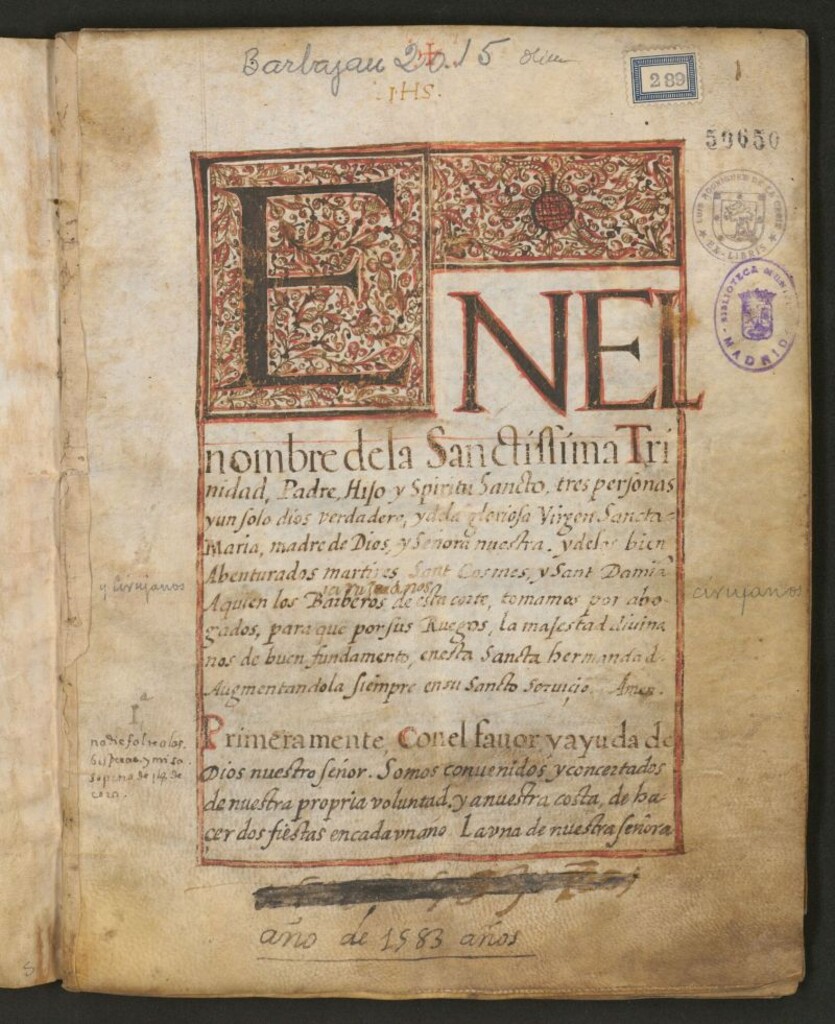 Barbajau 20.15
289
1
IHS.
59650
LUIS RODRIGUEZ DE LA
EX-LIBRIS
BIBLIOTECA
MADRID
EN EL
nombre de la Sanctissima Tri
nidad, Padre, Hijo y Spiritu Sancto, tres personas
y un solo dios verdadero, y dela gloriosa Virgen Sancta
Maria, madre de Dios, y Señora nuestra, y delos bien
Abenturados martires Sant Cosmes, y Sant Damiã
y cirujanos
cirujanos
A quien los Barberos de esta corte, tomamos por abo
gados, para que por sus Ruegos, la majestad diuina
nos de buen fundamento, en esta Sancta hermandad.
Augmentandola siempre en su Sancto Seruicio. Amen.
Primeramente, Con el fauor y ayuda de
Dios nuestro señor. Somos conuenidos, y concertados
de nuestra propria voluntad, y a nuestra costa, de ha
cer dos fiestas en cada vn año. La vna de nuestra señora
año de 1583 años